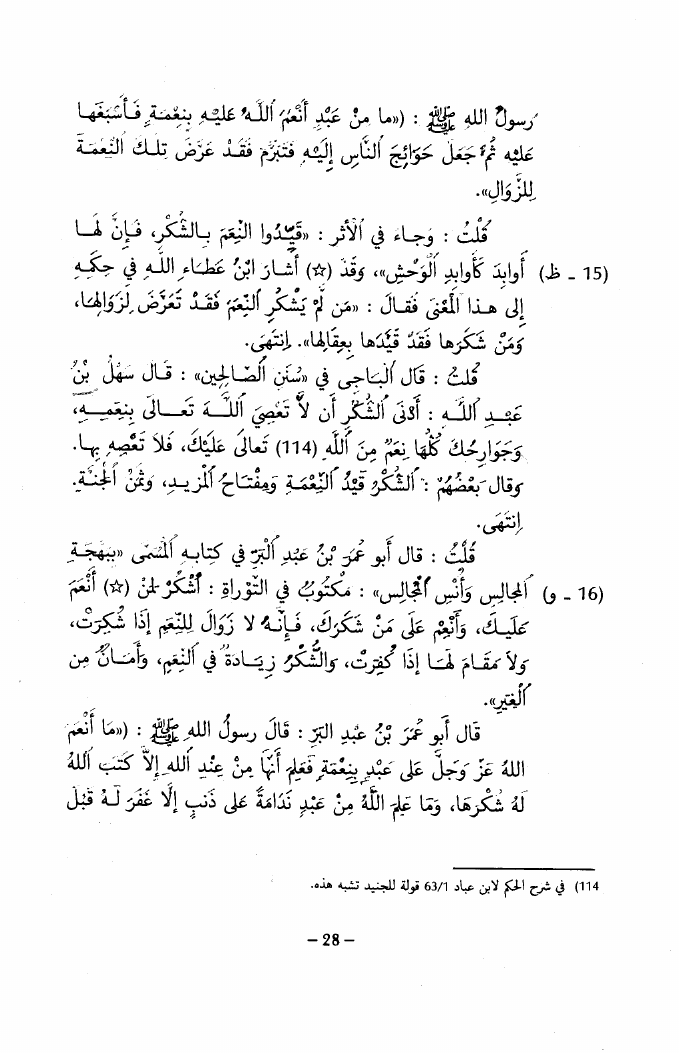 رسولُ الله ﷺ : («ما مِنْ عَبْدٍ أَنْعَمَ اَللَّهُ عَلَيْهِ بِنِعْمَةٍ فَأَسْبَغَها
عليْهِ ثُمَّ جَعَلَ حَوَائِجَ اَلنَّاسِ إِلَيْهِ فَتَبَرَّمَ فَقَدْ عَرَّضَ تِلْكَ اَلنِّعْمَةَ
لِلزَّوَالِ».
قُلْتُ : وجاءَ في اَلأثرِ : «قَيِّدُوا النِّعَمَ بِالشُّكْرِ، فَإِنَّ لها
15 ـ ظ) أَوابِدَ كَأَوابِدِ اَلْوَحْشِ»، وَقَدْ (☆) أشارَ ابْنُ عَطاءِ اللهِ في حِكَمِهِ
إلى هذا اَلْمَعْنَى فَقالَ : «مَن لَمْ يَشْكُرِ اَلنِّعَمَ فَقَدْ تَعَرَّضَ لِزَوَالِهَا،
وَمَنْ شَكَرَها فَقَدْ قَيَّدَها بِعِقَالِها». اِنتَهَى.
قُلتُ : قَالَ اَلْبَاجِي في «سُنَنِ اَلصَّالِحِين» : قالَ سَهْلُ بْنُ
عَبْدِ اَللَّهِ : أَدْنَى اَلشُّكْرِ أن لاَّ تَعْصِيَ اَللَّهَ تَعالَى بِنِعَمِهِ،
وَجَوَارِحُكَ كُلُّهَا نِعَمٌ مِنَ اَللهِ (114) تَعالَى عَلَيْكَ، فَلا تَعْصِهِ بِها.
وقالَ بَعْضُهُمْ : اَلشُّكْرُ قَيْدُ اَلنِّعْمَةِ وَمِفْتَاحُ اَلْمَزِيدِ، وَثَمَنُ اَلْجَنَّةِ.
اِنتَهَى.
قُلْتُ : قال أبو عُمَرَ بْنُ عَبْدِ اَلْبَرِّ في كِتابِهِ اَلْمُسَمَّى «بِبَهْجَةِ
16 ـ و) اَلمَجَالِسِ وَأُنْسِ اَلْمُجَالِسِ» : مَكْتُوبٌ في التَّوْراةِ : اُشْكُرْ لِمَنْ (☆) أَنْعَمَ
عَلَيْكَ، وَأَنْعِمْ عَلَى مَنْ شَكَرَكَ، فَإِنَّهُ لا زَوَالَ لِلنِّعَمِ إِذَا شُكِرَتْ،
وَلاَ مَقَامَ لَهَا إِذَا كُفِرَتْ، وَالشُّكْرُ زِيَادَةٌ في اَلنِّعَمِ، وَأَمَانٌ مِن
اَلْغِيَرِ».
قالَ أَبو عُمَرَ بْنُ عَبْدِ البَرِّ : قَالَ رسولُ اللهِ ﷺ : («مَا أَنْعَمَ
اللهُ عَزَّ وَجَلَّ عَلَى عَبْدٍ بِنِعْمَةٍ فَعَلِمَ أَنَّهَا مِنْ عِنْدِ اَللهِ إِلاَّ كَتَبَ اَللهُ
لَهُ شُكْرَهَا، وَمَا عَلِمَ اَللَّهُ مِنْ عَبْدٍ نَدَامَةً عَلَى ذَنبٍ إِلا غَفَرَ لَهُ قَبْلَ
114) في شرح الحكم لابن عباد 63/1 قولة للجنيد تشبه هذه.
– 28 –